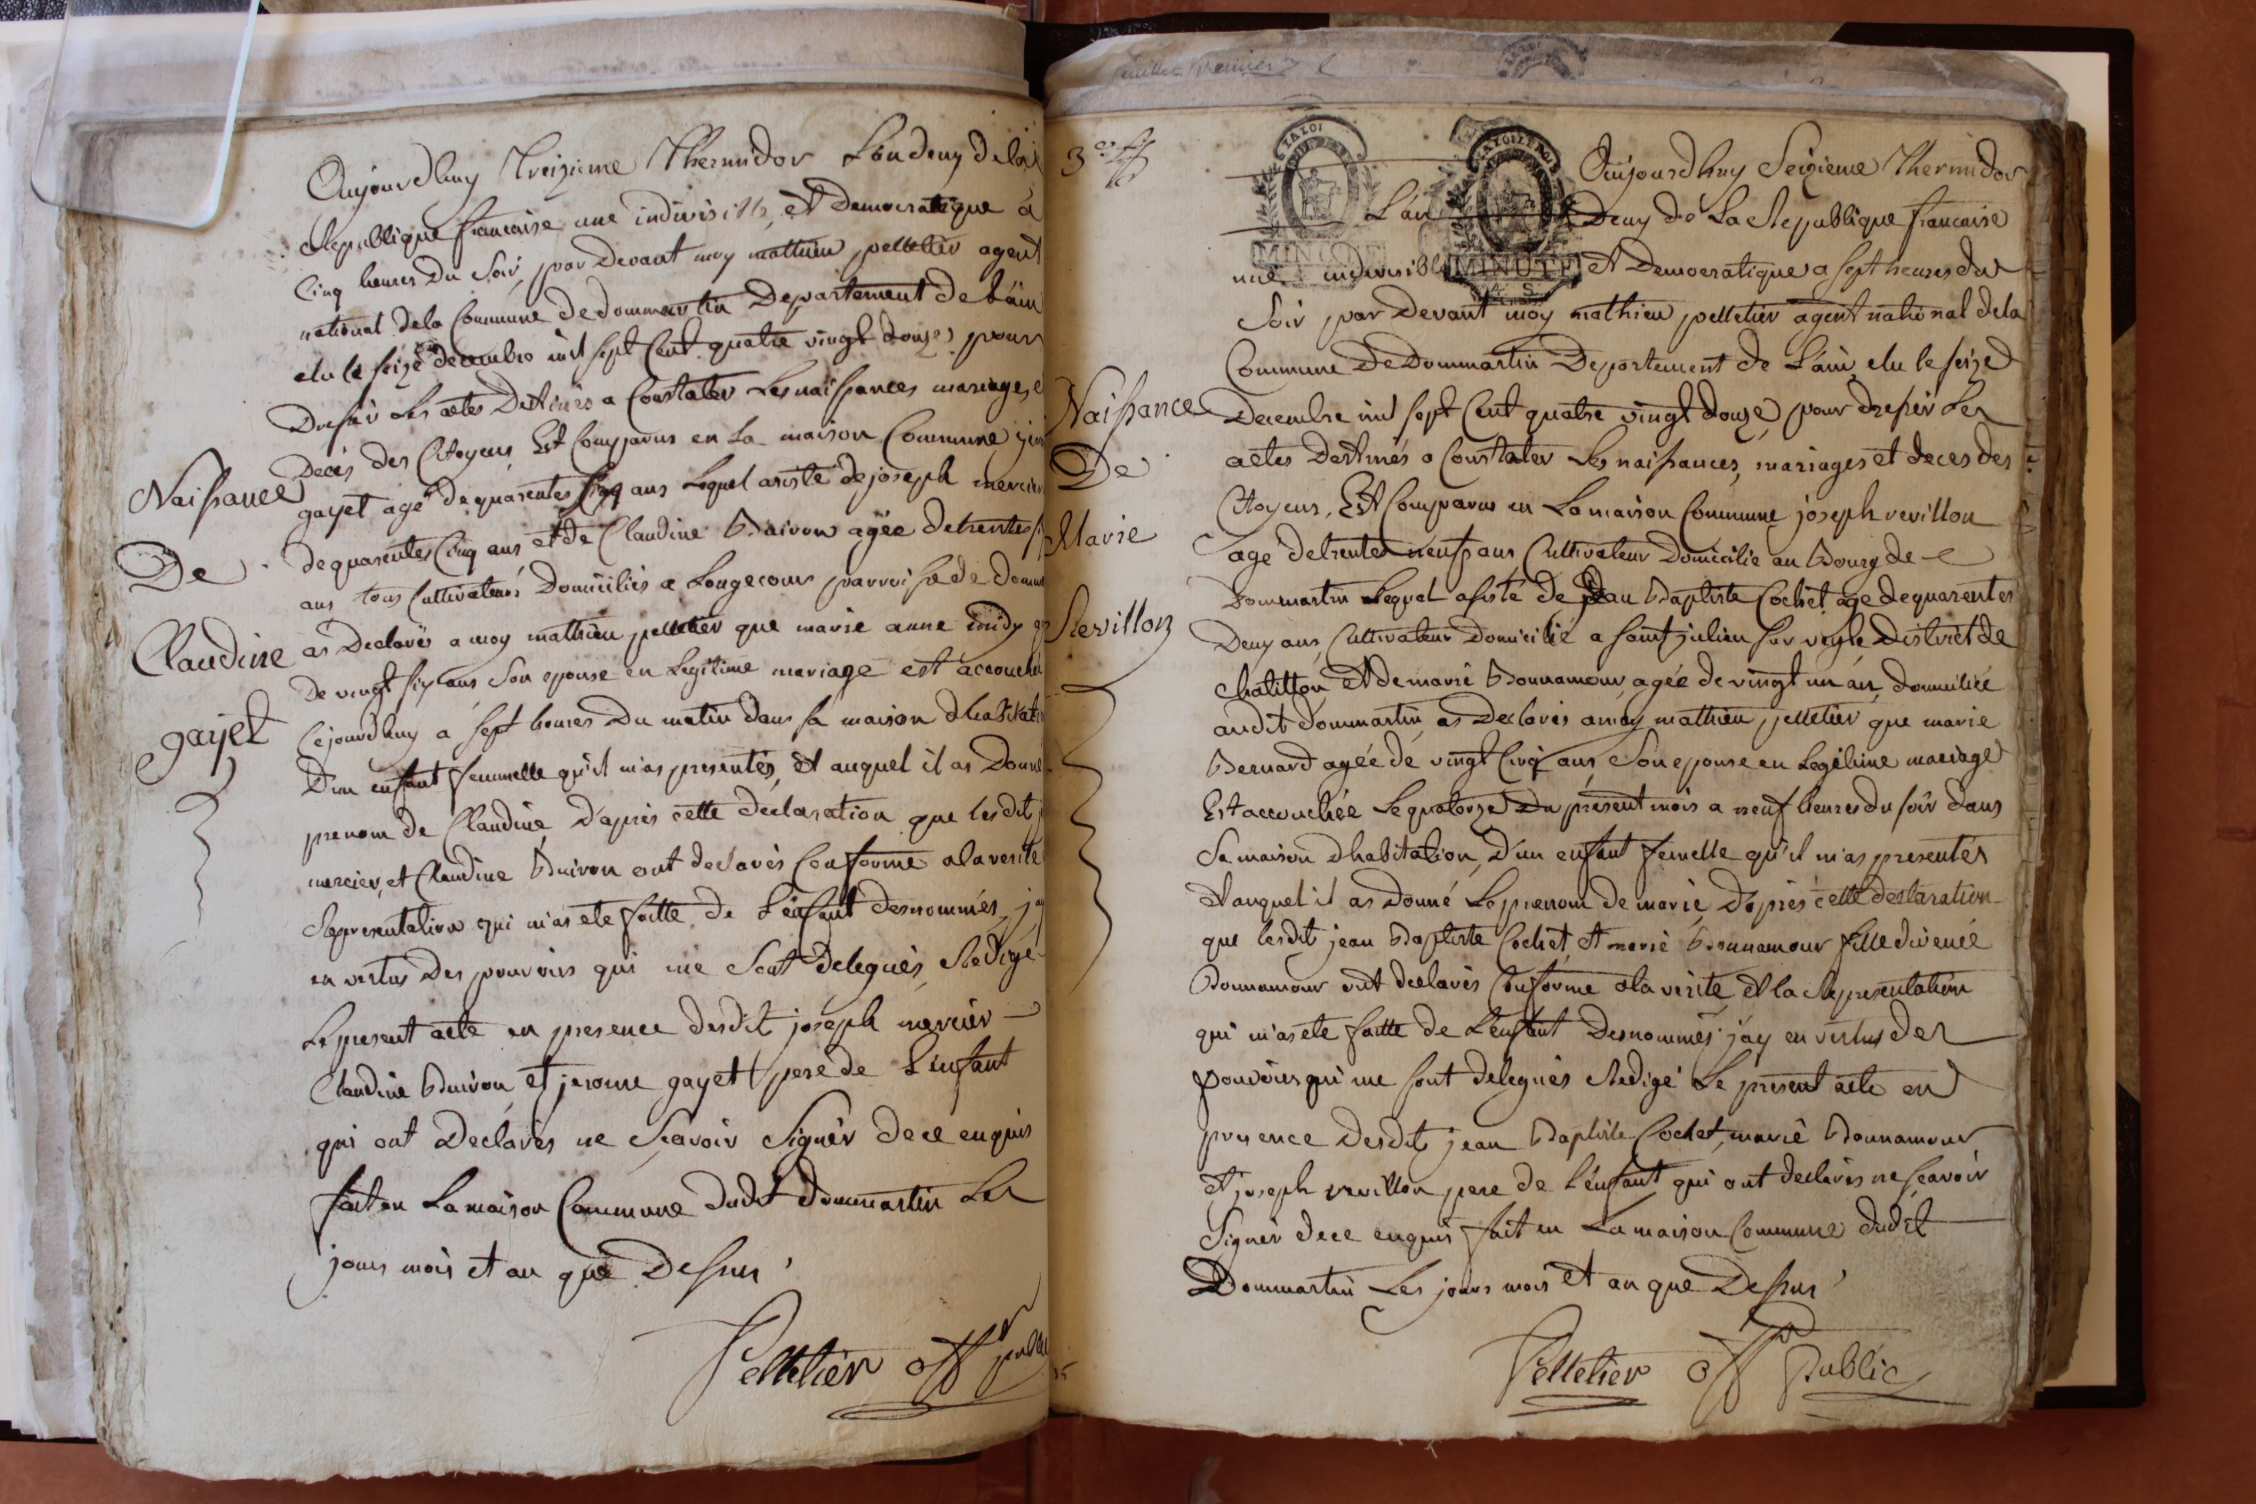 Aujourdhuy Treizieme Thermidor L'an deux de la
Republique francaise une indivisible, et Democratique a
Cinq heures Du Soir, par Devant moy mathieu pelletier agent
national de la Commune de dommartin Departement de L'ain
elu le seize decembre mil sept Cent quatre vingt douze, pour
Dresser Les actes Destinés a Constater Les naissances mariages e
Decés des Citoyens, Est Comparus en La maison Commune
gayet agé de quarente Cinq ans Lequel assisté de joseph mercier
de quarentes Cinq ans et de Claudine Buiron agée de trentes
ans tous Cultivateurs Domiciliés a Longecour parroisse de domm
as Declarés a moy mathieu pelletier que marie anne
De vingt six ans Son epouse en Legitime mariage est accouché
Cejourdhuy a Sept heures Du matin dans sa maison dhabitati
D'un enfant femmelle qu'il m'as presentés, et auquel il as Donné
prenom de Claudine, D'apres cette declaration que lesdit j
mercier, et Claudine Buiron ont declarés Conforme a la verité
Representation qui m'as eté faitte de L'enfant desnommés, jay
en vertus Des pouvoirs qui me Sont Delegués, Redigé
Le present acte en presence desdit joseph mercier
Claudine Buiron, et jerome gayet pere de L'enfant
qui ont Declarés ne Scavoir Signér de ce enquis
fait en La maison Commune dudit dommartin Les
jours mois et an que Dessus
Pelletier off public
Naissance
De
Claudine
gayet
3
Aujourdhuy Seizieme Thermidor
L'an Deux de La Republique francaise
MINUTE
une indivisible et Democratique a sept heures du
Soir par Devant moy mathieu pelletier agent national de la
Commune De Dommartin Departement de L'ain elu le seize
Decembre mil sept Cent quatre vingt douze, pour dresser Les
actes Destinés a Constater Les naissances, mariages et deces des
Citoyens, Est Comparus en La maison Commune joseph revillon
age de trentes neuf ans Cultivateur Domicilié au Bourg de
Dommartin Lequel assisté de jean Baptiste Cochet, agé de quarentes
Deux ans, Cultivateur Domicilié a saint julien sur vesle District de
Chatillon et de marie Bonnamour, agée de vingt un an, domiciliée
audit dommartin, as Declarés a moy mathieu pelletier que marie
Bernard agée de vingt Cinq ans, Son epouse en Legitime mariage
Est accouchée Le quatorze Du present mois a neuf heures du soir dans
Sa maison dhabitation, D'un enfant femelle qu'il m'as presentés
et auquel il as Donné Le prenom de marie, D'apres cette declaration
que lesdit jean Baptiste Cochet, et marie Bonnamour fille
Bonnamour ont declarés Conforme a la verité et la Representation
qui m'as eté faitte de L'enfant Desnommés, jay en vertus des
pouvoirs qui me sont delegués Redigé Le present acte en
presence Desdit jean Baptiste Cochet, marie Bonnamour
et joseph revillon pere de L'enfant qui ont declarés ne scavoir
Signér de ce enquis fait en La maison Commune dudit
Dommartin Les jours mois et an que Dessus
Pelletier off Public
Naissance
De
Marie
Revillon